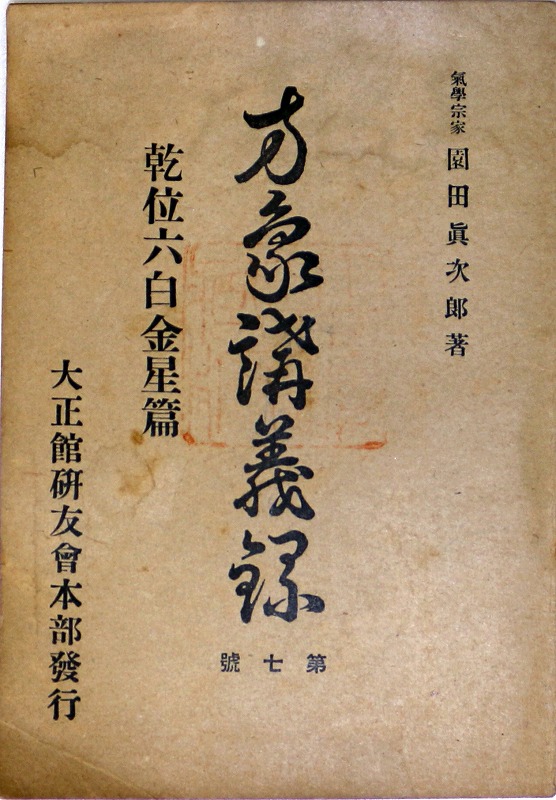 氣學宗家 園田眞次郎著
方象講義録
第七號
乾位六白金星篇
大正館研友會本部發行